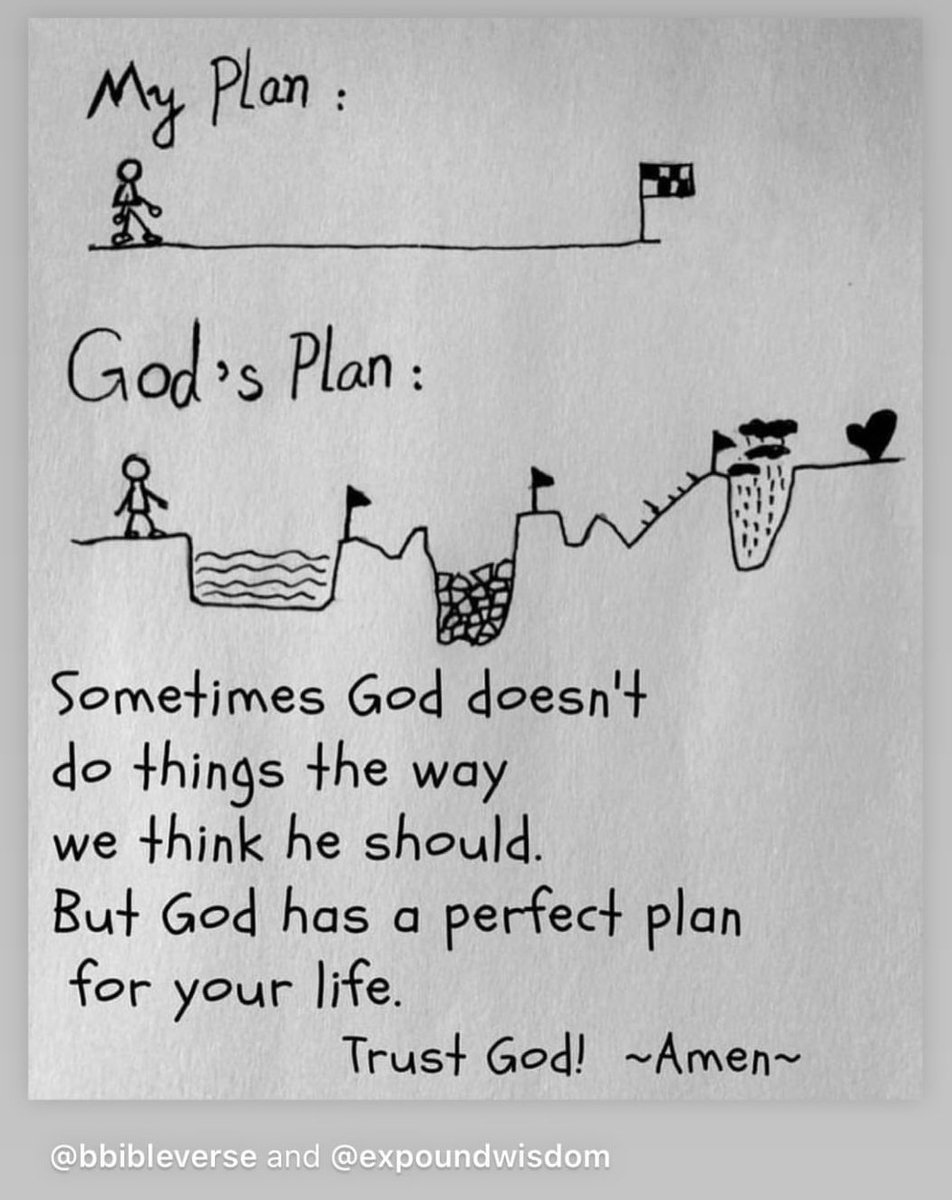 My Plan :
God's Plan :
Sometimes God doesn't
do things the way
we think he should.
But God has a perfect plan
for your life.
Trust God! ~Amen~
@bbibleverse and @expoundwisdom